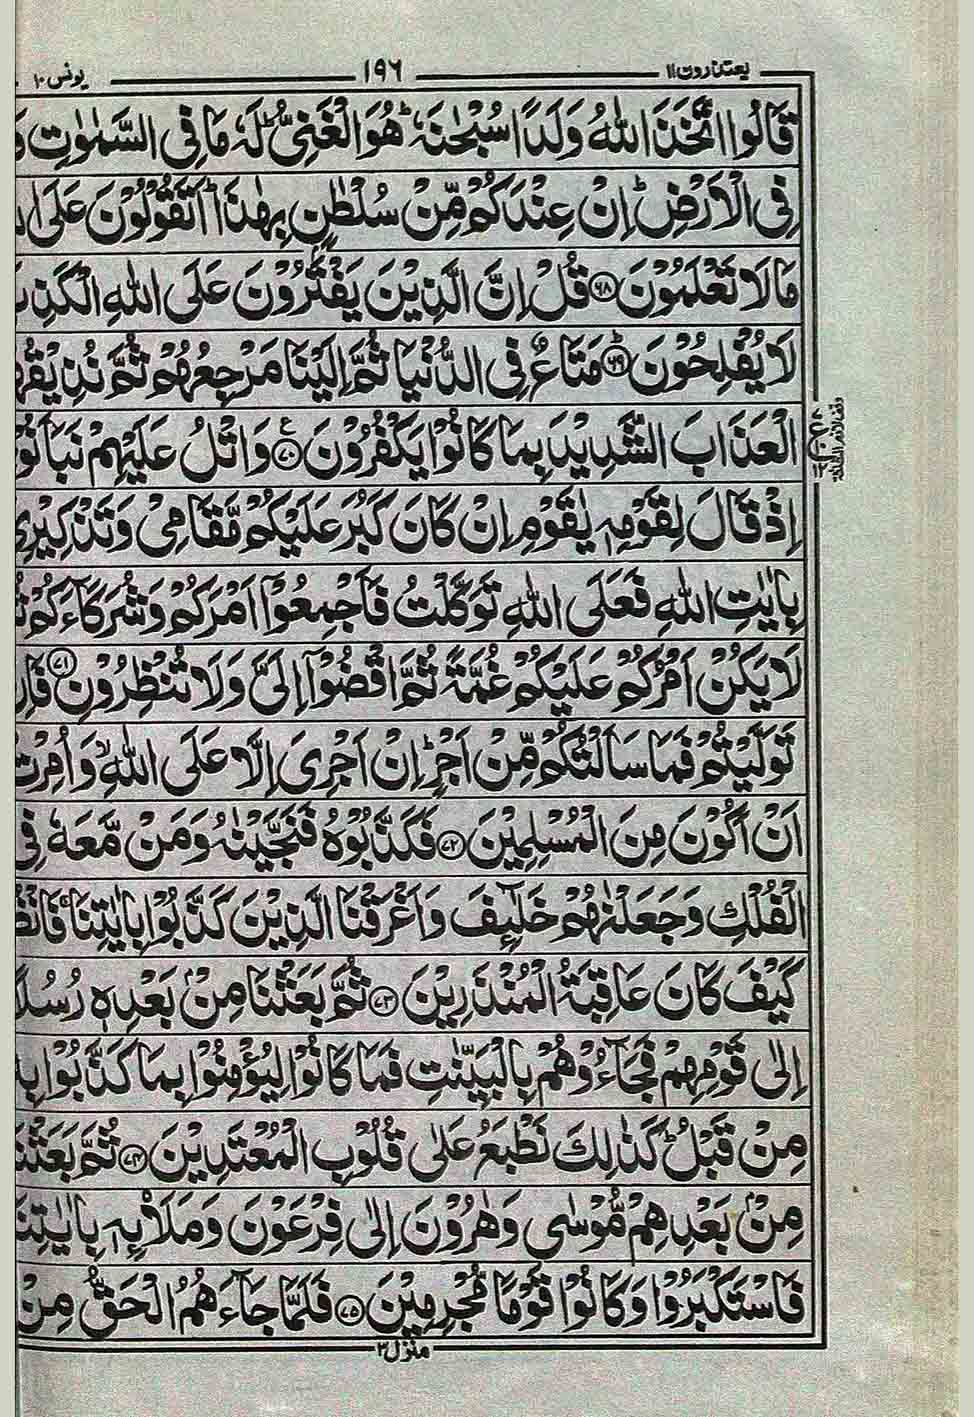 یعتذرون ۱۱ ۱۹۶ یونس ۱۰
قَالُوا اتَّخَذَ اللّٰهُ وَلَدًا سُبْحٰنَهٗ ؕ هُوَ الْغَنِیُّ ؕ لَهٗ مَا فِی السَّمٰوٰتِ وَ
فِی الْاَرْضِ ؕ اِنْ عِنْدَكُمْ مِّنْ سُلْطٰنٍۭ بِهٰذَا ؕ اَتَقُوْلُوْنَ عَلَی
مَا لَا تَعْلَمُوْنَ ﴿۶۸﴾ قُلْ اِنَّ الَّذِیْنَ یَفْتَرُوْنَ عَلَی اللّٰهِ الْكَذِبَ
لَا یُفْلِحُوْنَ ﴿۶۹﴾ؕ مَتَاعٌ فِی الدُّنْیَا ثُمَّ اِلَیْنَا مَرْجِعُهُمْ ثُمَّ نُذِیْقُهُ
الْعَذَابَ الشَّدِیْدَ بِمَا كَانُوْا یَكْفُرُوْنَ ﴿۷۰﴾ع وَ اتْلُ عَلَیْهِمْ نَبَاَ نُوْ
اِذْ قَالَ لِقَوْمِهٖ یٰقَوْمِ اِنْ كَانَ كَبُرَ عَلَیْكُمْ مَّقَامِیْ وَ تَذْكِیْرِیْ
بِاٰیٰتِ اللّٰهِ فَعَلَی اللّٰهِ تَوَكَّلْتُ فَاَجْمِعُوْۤا اَمْرَكُمْ وَ شُرَكَآءَكُمْ ثُ
لَا یَكُنْ اَمْرُكُمْ عَلَیْكُمْ غُمَّةً ثُمَّ اقْضُوْۤا اِلَیَّ وَ لَا تُنْظِرُوْنِ ﴿۷۱﴾ فَاِ
تَوَلَّیْتُمْ فَمَا سَاَلْتُكُمْ مِّنْ اَجْرٍ ؕ اِنْ اَجْرِیَ اِلَّا عَلَی اللّٰهِ ۙ وَ اُمِرْتُ
اَنْ اَكُوْنَ مِنَ الْمُسْلِمِیْنَ ﴿۷۲﴾ فَكَذَّبُوْهُ فَنَجَّیْنٰهُ وَ مَنْ مَّعَهٗ فِی
الْفُلْكِ وَ جَعَلْنٰهُمْ خَلٰٓىِٕفَ وَ اَغْرَقْنَا الَّذِیْنَ كَذَّبُوْا بِاٰیٰتِنَا ۚ فَانْظُ
كَیْفَ كَانَ عَاقِبَةُ الْمُنْذَرِیْنَ ﴿۷۳﴾ ثُمَّ بَعَثْنَا مِنْۢ بَعْدِهٖ رُسُلًا
اِلٰی قَوْمِهِمْ فَجَآءُوْهُمْ بِالْبَیِّنٰتِ فَمَا كَانُوْا لِیُؤْمِنُوْا بِمَا كَذَّبُوْا بِهٖ
مِنْ قَبْلُ ؕ كَذٰلِكَ نَطْبَعُ عَلٰی قُلُوْبِ الْمُعْتَدِیْنَ ﴿۷۴﴾ ثُمَّ بَعَثْنَا
مِنْۢ بَعْدِهِمْ مُّوْسٰی وَ هٰرُوْنَ اِلٰی فِرْعَوْنَ وَ مَلَاۡىِٕهٖ بِاٰیٰتِنَا
فَاسْتَكْبَرُوْا وَ كَانُوْا قَوْمًا مُّجْرِمِیْنَ ﴿۷۵﴾ فَلَمَّا جَآءَهُمُ الْحَقُّ مِنْ
منزل ۳